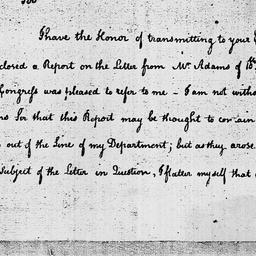 I have the Honor of transmitting to your
closed a Report on the Letter from Mr Adams of 16th
Congress was pleased to refer to me – I am not witho
Sir that this Report may be thought to contain
out of the Line of my Department; but as they arose
Subject of the Letter in Question, I flatter myself that